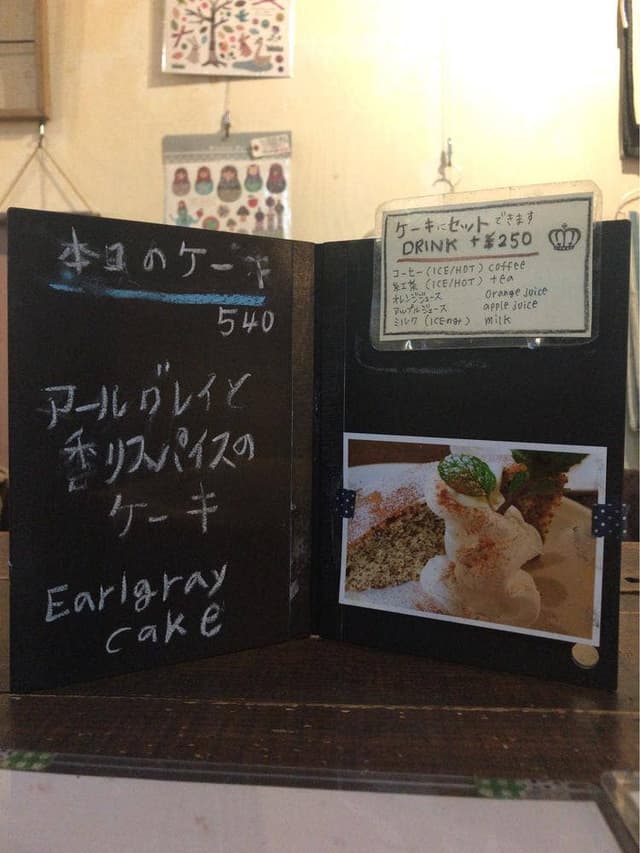 本日のケーキ
540
アールグレイと
香リスパイスの
ケーキ
Earlgray
cake
ケーキにセットできます
DRINK +¥250
コーヒー (ICE/HOT) coffee
紅茶 (ICE/HOT) tea
オレンジジュース Orange juice
アップルジュース apple juice
ミルク (ICEのみ) milk